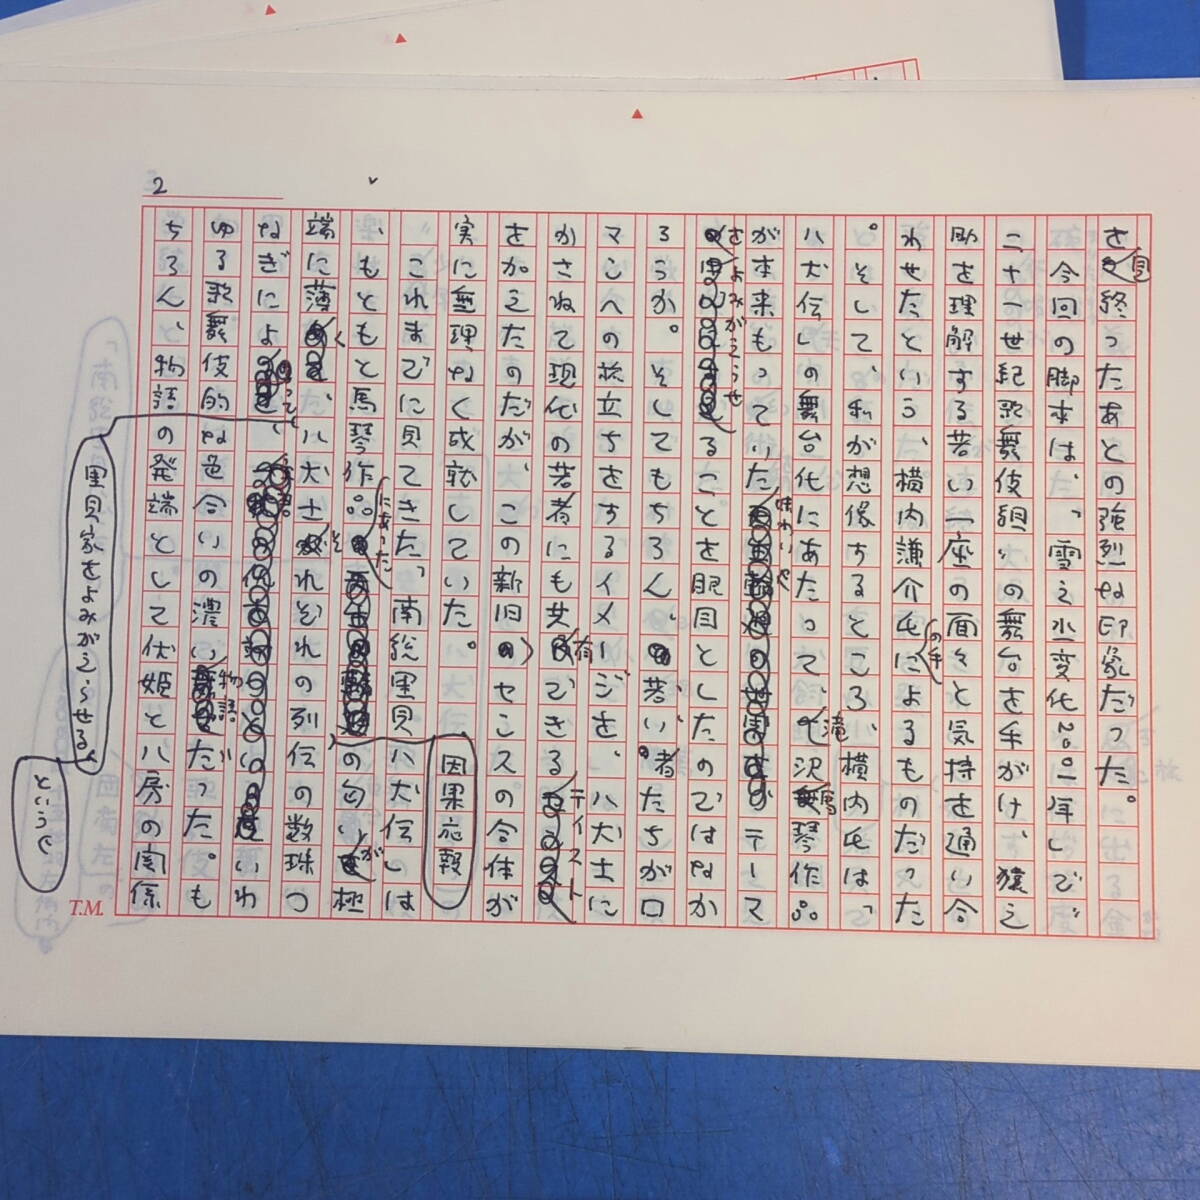 2
を見終ったあとの強烈な印象だった。
今回の脚本は、「雪之丞変化2001年」で
二十一世紀歌舞伎組の舞台を手がけ、猿之
助を理解する若い一座の面々と気持を通い合
わせたという、横内謙介氏の手によるものだった
。そして、私が想像するところ、横内氏は「
八犬伝」の舞台化にあたって、滝沢馬琴作品
が本来もっていた味わいや
テーマ
をよみがえらせることを眼目としたのではなか
ろうか。そしてもちろん、若い者たちがロ
マンへの旅立ちをするイメージを、八犬士に
かさねて現代の若者にも共有できるテイスト
をかえたのだが、この新旧のセンスの合体が
実に無理なく成就していた。
これまでに見てきた「南総里見八犬伝」は
、もともと馬琴作品にあった因果応報の匂いが極
端に薄く、八犬士それぞれの列伝の数珠つ
なぎによって、
里見家をよみがえらせる
という
いわ
ゆる歌舞伎的な色合いの濃い物語だった。も
ちろん、物語の発端として伏姫と八房の関係
T.M.